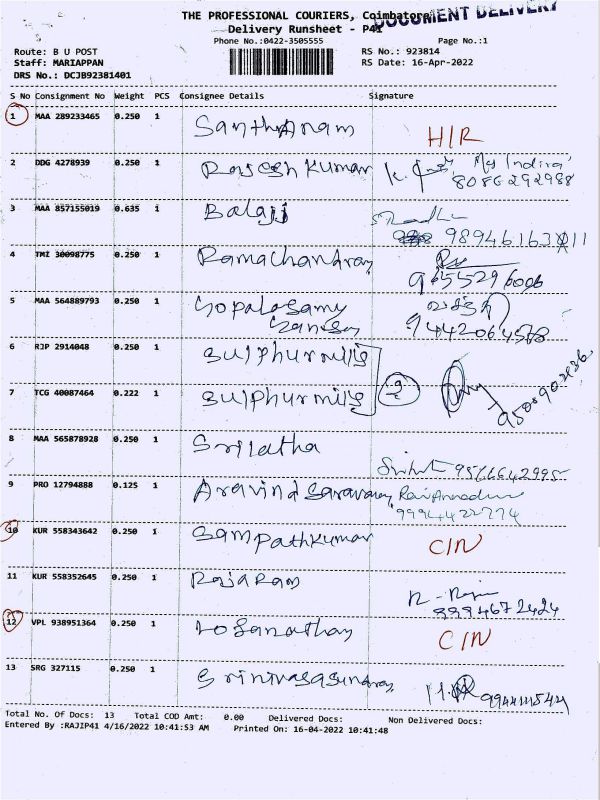 THE PROFESSIONAL COURIERS, Coimbatore
DOCUMENT DELIVERY
Delivery Runsheet - P41
Phone No.:0422-3505555
Page No.:1
Route: B U POST
RS No.: 923814
Staff: MARIAPPAN
RS Date: 16-Apr-2022
DRS No.: DCJB92381401
S No Consignment No Weight PCS Consignee Details Signature
1 MAA 289233465 0.250 1 Santhanam H/R
2 DDG 4278939 0.250 1 Rajesh Kumar
8086292988
3 MAA 857155019 0.635 1 Balaji
4 TMZ 30098775 0.250 1 Ramachandran
9655296006
5 MAA 564889793 0.250 1 Gopalasamy
9442064578
6 RJP 2914048 0.250 1 Sulphurmills
7 TCG 40087464 0.222 1 Sulphurmills 2
8 MAA 565878928 0.250 1 Srilatha
9566642995
9 PRO 12794888 0.125 1 Aravind Saravanan
9994422774
10 KUR 558343642 0.250 1 Sampathkumar C/N
11 KUR 558352645 0.250 1 Rajaram
9994672424
12 VPL 938951364 0.250 1 Loganathan C/N
13 SRG 327115 0.250 1 Srinivasasundaran
Total No. Of Docs: 13 Total COD Amt: 0.00 Delivered Docs: Non Delivered Docs:
Entered By :RAJIP41 4/16/2022 10:41:53 AM Printed On: 16-04-2022 10:41:48